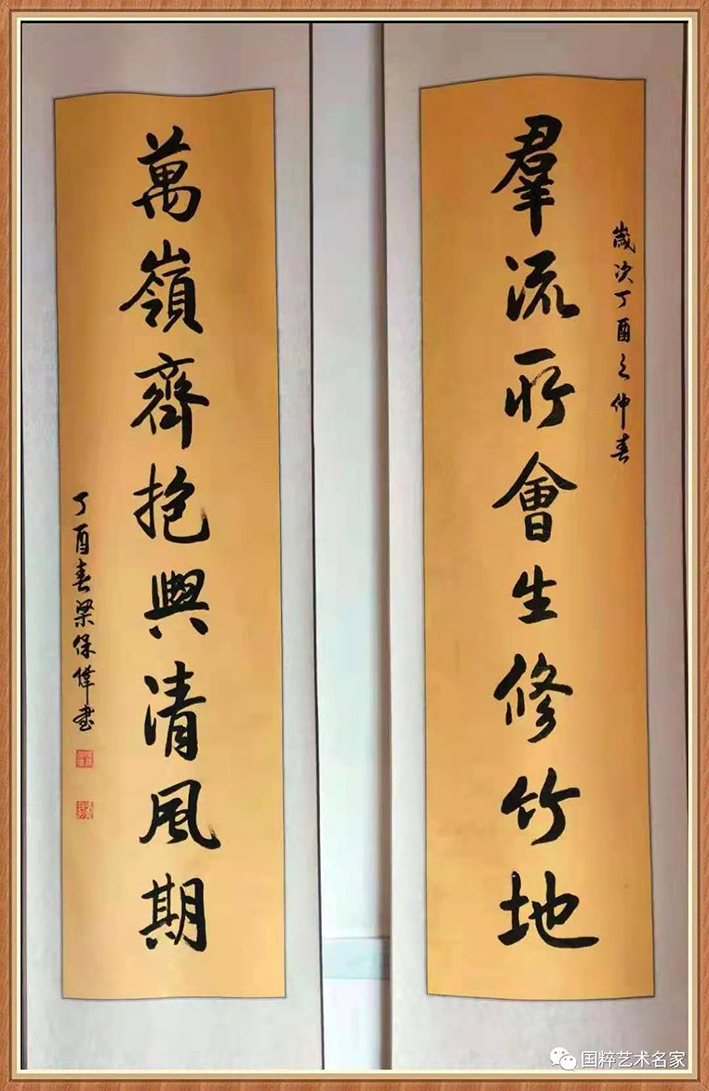 歲次丁酉之仲春
羣流所會生修竹地
萬嶺齊抱與清風期
丁酉春梁保偉書
国粹艺术名家